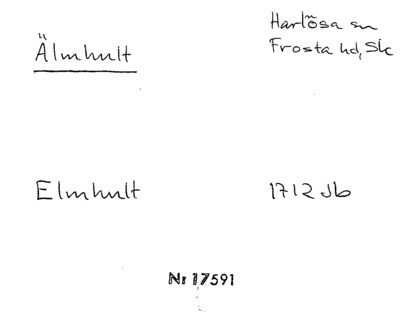 Älmhult
Harlösa sn
Frosta hd, Sk
Elmhult
1712 Jb
Nr 17591